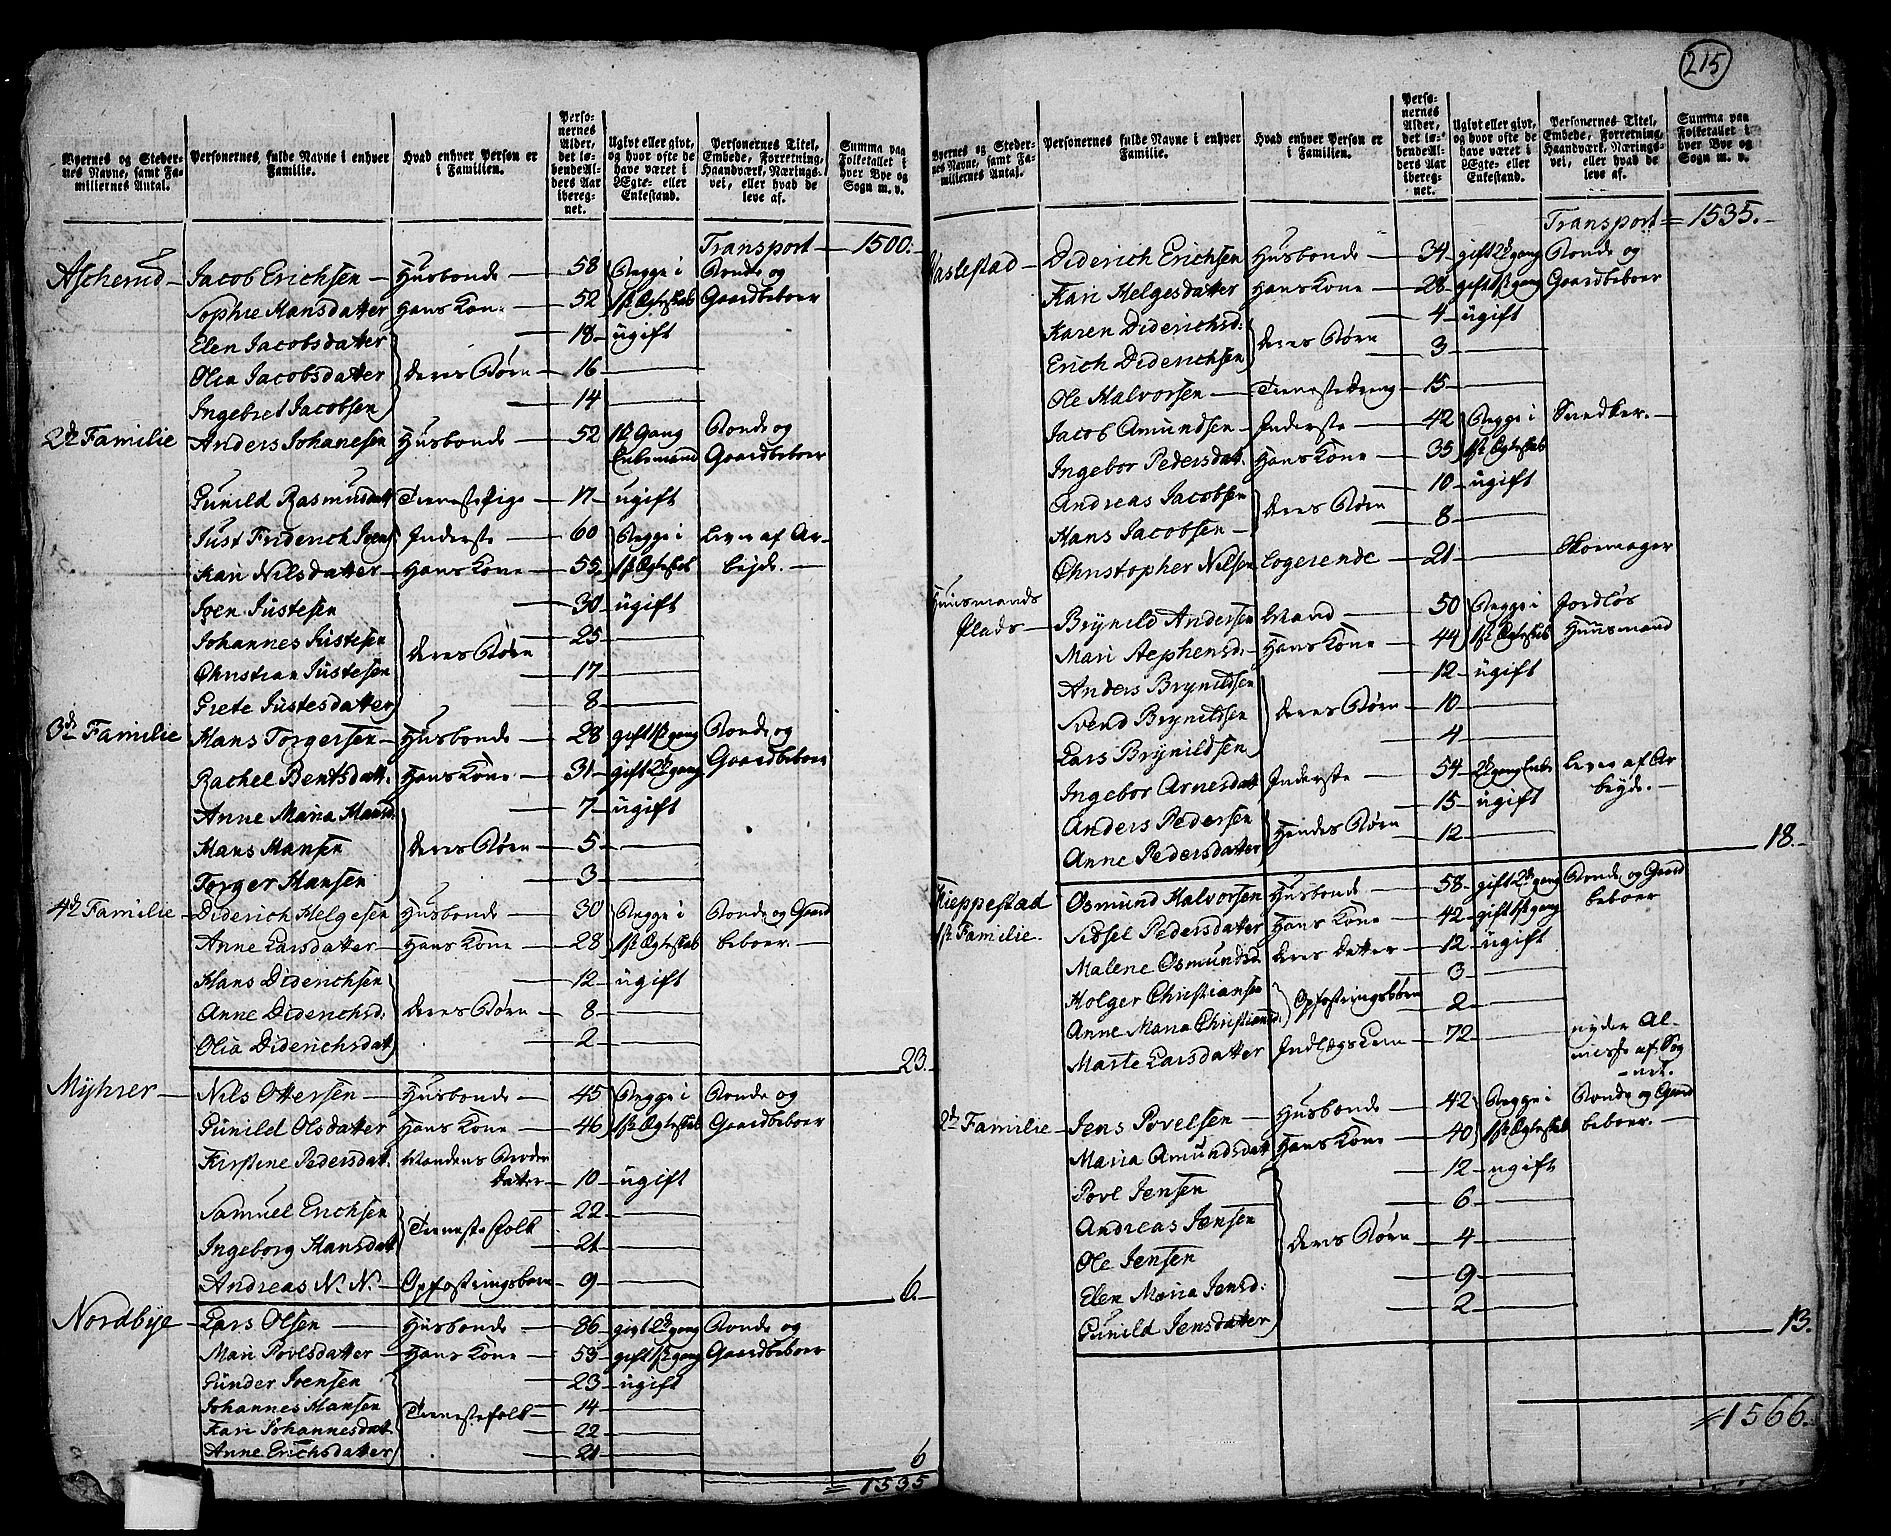 215
Byernes og Stedernes Navne, samt Familiernes Antal.
Personernes fulde Navne i enhver Familie.
Hvad enhver Person er i Familien.
Personernes Alder, det løbende Alders Aar iberegnet.
Ugivt eller givt, og hvor ofte de have været i Ægte- eller Enkestand.
Personernes Titel, Embede, Forretning, Haandværk, Næringsvei, eller hvad de leve af.
Summa paa Folketallet i hver Bye og Sogn m. v.
Transport 1500.
Ascherud Jacob Erichsen Husbonde 58 Begge i Bonde og
Sophie Hansdatter Hans Kone 52 1st Ægteskab Gaardbeboer
Elen Jacobsdatter 18 ugift
Olia Jacobsdatter deres Børn 16
Ingebret Jacobsen 14
2de Familie Anders Johanesen Husbonde 52 1st Gang Bonde og
Enkemand Gaardbeboer
Gunild Rasmusdatt Tienestepige 17 ugift
Just Friderich Joens Inderste 60 Begge i Lever af Ar-
Kari Nilsdatter Hans Kone 55 1st Ægteskab bejde.
Joen Justesen 30 ugift
Johannes Justesen 25
Christian Justesen deres Børn 17
Grete Justesdatter 8
3de Familie Hans Torgersen Husbonde 28 gift 1st gang Bonde og
Rachel Bentsdatt. Hans Kone 31 gift 2de gang Gaardbeboer
Anne Maria Hansd. 7 ugift
Hans Hansen deres Børn 5
Torger Hansen 3
4de Familie Diderich Helgesen Husbonde 30 Begge i Bonde og Gaard
Anne Larsdatter Hans Kone 28 1st Ægteskab beboer.
Hans Diderichsen 12 ugift
Anne Diderichsd. deres Børn 8
Olia Diderichsdat 2
23.
Myhrer Nils Ottersen Husbonde 45 Begge i Bonde og
Gunild Olsdatter Hans Kone 46 1st Ægteskab Gaardbeboer
Kirstine Pedersdat. Mandens Broder
datter 10 ugift
Samuel Erichsen 22
Ingeborg Hansdatt Tienestefolk 21
Andreas N. N. Opfostringsbarn 9
6.
Nordbye Lars Olsen Husbonde 86 gift 2de gang Bonde og
Mari Povlsdatter Hans Kone 53 gift 1st gang Gaardbeboer
Gunder Joensen 23 ugift
Johannes Hansen Tienestefolk 14
Kari Johannesdat 22
Anne Erichsdatter 21
6
1535
Byernes og Stedernes Navne, samt Familiernes Antal.
Personernes fulde Navne i enhver Familie.
Hvad enhver Person er i Familien.
Personernes Alder, det løbende Alders Aar iberegnet.
Ugivt eller givt, og hvor ofte de have været i Ægte- eller Enkestand.
Personernes Titel, Embede, Forretning, Haandværk, Næringsvei, eller hvad de leve af.
Summa paa Folketallet i hver Bye og Sogn m. v.
Transport 1535.
Haslestad Diderich Erichsen Husbonde 34 gift 2de gang Bonde og
Kari Helgesdatter Hans Kone 28 gift 1st gang Gaardbeboer
Karen Diderichsd: 4 ugift
Erich Diderichsen deres Børn 3
Ole Halvorsen Tienestedreng 15
Jacob Amundsen Inderste 42 Begge i Snedker.
Ingebor Pedersdat. Hans Kone 35 1st Ægteskab
Andreas Jacobsen 10 ugift
Hans Jacobsen deres Børn 8
Christopher Nilsen Logerende 21 Skomager
Huusmands
Plads Brynild Andersen Mand 50 Begge i Jordløs
Mari Stephensd. Hans Kone 44 1st Ægteskab Huusmand
Anders Brynildsen 12 ugift
Svend Brynildsen deres Børn 10
Lars Brynildsen 4
Ingebor Arnesdat Inderste 54 2de gang Enke Lever af Ar
Anders Pedersen 15 ugift bejde.
Anne Pedersdatter Hendes Børn 12
18.
Kieppestad Osmund Halvorsen Husbonde 58 gift 2de gang Bonde og Gaard
1st Familie. Sidsel Pedersdatter Hans Kone 42 gift 1st gang beboer
Malene Osmundsd. deres datter 12 ugift
Holger Christiansen 3
Anne Maria Christiansd. Opfostringsbørn 2
Marte Larsdatter Indlægs Lem 72 nyder Al-
misse af Sog
net.
2de Familie Jens Povelsen Husbonde 42 Begge i Bonde og Gaard
Maria Amundsdat Hans Kone 40 1st Ægteskab beboer.
Povl Jensen 12 ugift
Andreas Jensen 6
Ole Jensen deres Børn 4
Elen Maria Jensd: 9
Gunild Jensdatter 2
13.
1566.